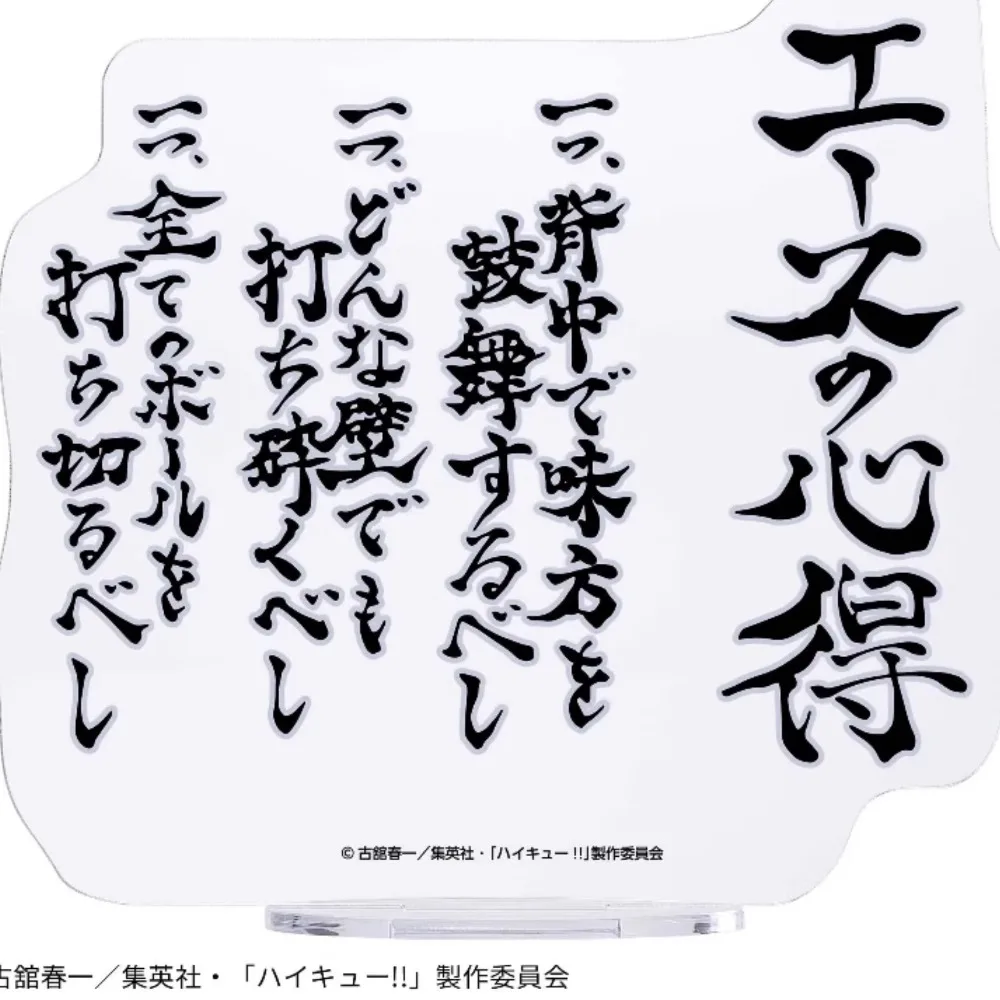 エースの心得
一つ、背中で味方を
鼓舞するべし
一つ、どんな壁でも
打ち砕くべし
一つ、全てのボールを
打ち切るべし
© 古舘春一／集英社・「ハイキュー!!」製作委員会
古舘春一／集英社・「ハイキュー!!」製作委員会